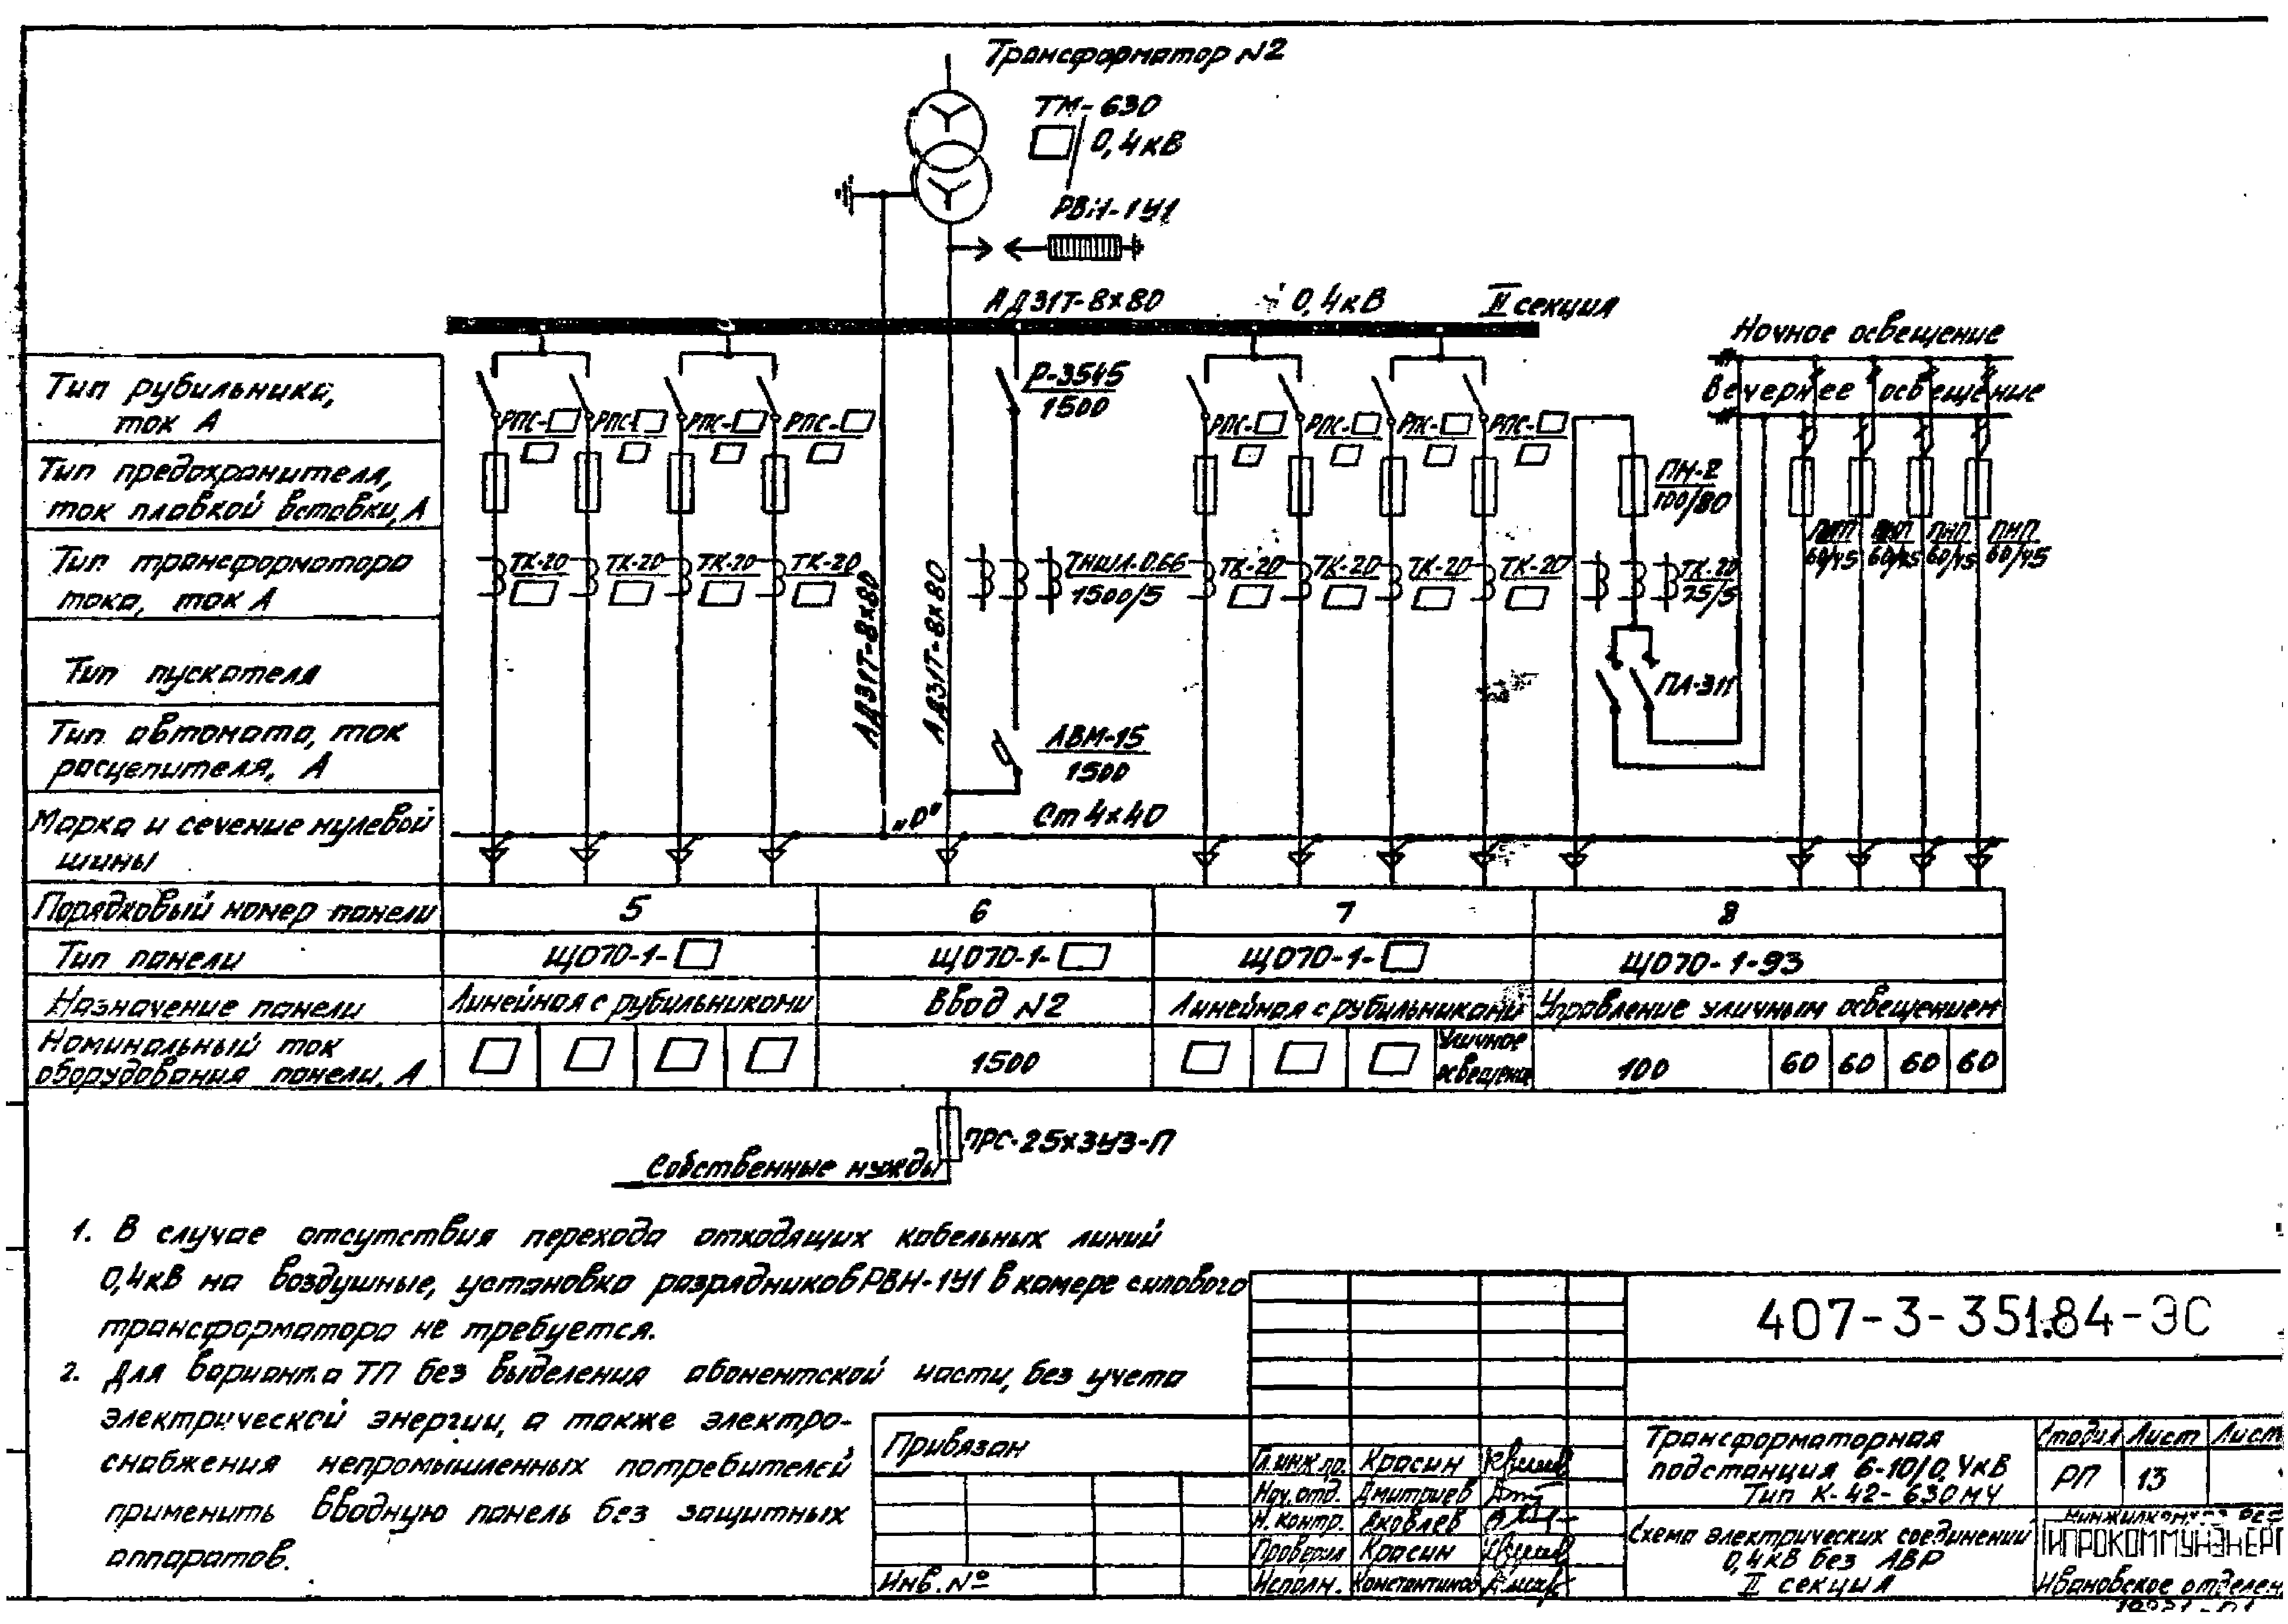 Трансформатор N2
ТМ-630
0,4кВ
РВН-1У1
АД31Т-8х80 0,4кВ II секция
Ночное освещение
Вечернее освещение
Тип рубильника,
ток А
Р-3545
1500
РПС- РПС- РПС- РПС-
РПС- РПС- РПС- РПС-
Тип предохранителя,
ток плавкой вставки, А
ПН-2
100/80
ПНП ПНП ПНП ПНП
60/45 60/45 60/45 60/45
Тип трансформатора
тока, ток А
ТК-20 ТК-20 ТК-20 ТК-20
ТНШЛ-0.66
1500/5
ТК-20 ТК-20 ТК-20 ТК-20
ТК-20
75/5
АД31Т-8х80
АД31Т-8х80
Тип пускателя
ПА-311
Тип автомата, ток
расцепителя, А
АВМ-15
1500
Марка и сечение нулевой
шины
„0" Ст 4х40
Порядковый номер панели 5 6 7 8
Тип панели ЩО70-1- ЩО70-1- ЩО70-1- ЩО70-1-93
Назначение панели Линейная с рубильниками Ввод N2 Линейная с рубильниками Управление уличным освещением
Номинальный ток
оборудования панели, А
1500
Уличное
освещение
100 60 60 60 60
ПРС-25х3У3-П
Собственные нужды
1. В случае отсутствия перехода отходящих кабельных линий
0,4кВ на воздушные, установка разрядников РВН-1У1 в камере силового
трансформатора не требуется.
2. Для варианта ТП без выделения абонентской части, без учета
электрической энергии, а также электро-
снабжения непромышленных потребителей
применить вводную панель без защитных
аппаратов.
Привязан
Инв. №
407-3-351.84-ЭС
Гл.инж.пр. Красин
Нач.отд. Дмитриев
Н. контр. Яковлев
Проверил Красин
Исполн. Константинов
Трансформаторная
подстанция 6-10/0,4кВ
Тип К-42-630М4
Стадия Лист Лист
РП 13
Схема электрических соединений
0,4кВ без АВР
II секция
ГИПРОКОММУНЭНЕРГ
Ивановское отделен